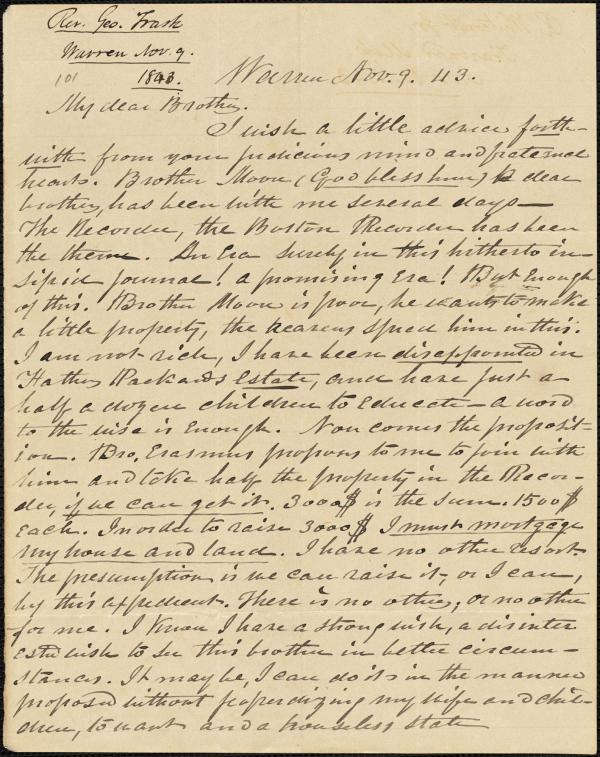 Rev. Geo. Trask
Warren Nov. 9.
101 1843.
Warren Nov. 9. 43.
My dear Brother.
I wish a little advice forth-
with from your judicious mind and fraternal
heart. Brother Moon (God bless him) a dear
brother, has been with me several days—
The Recorder, the Boston Recorder has been
the theme. An Era surely in this hitherto in-
sipid journal! a promising Era! But Enough
of this. Brother Moon is poor, he wants to make
a little property, the heavens speed him in this.
I am not rich, I have been disappointed in
Father Packards Estate, and have just a
half a dozen children to Educate – a word
to the wise is Enough. Now comes the proposit-
ion. Bro, Erasmus proposes to me to join with
him and take half the property in the Recor-
der, if we can get it. 3000$ is the sum. 1500$
Each. In order to raise 3000$ I must mortgage
my house and land. I have no other resort.
The presumption is we can raise it, or I can,
by this expedient. There is no other, or no other
for me. I know I have a strong wish, a disinter
ested wish to see this brother in better circum-
stances. It may be, I can do it in the manner
proposed without jeoperdizing my wife and chil-
dren, to want and a houseless state